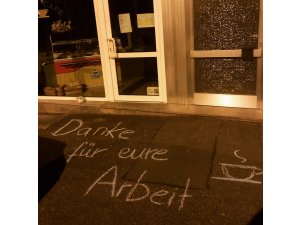 Danke
für eure
Arbeit